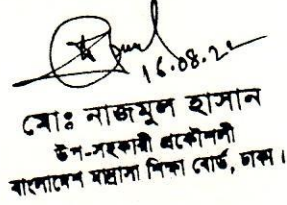 16.08.2২
মোঃ নাজমুল হাসান
উপ-সহকারী প্রকৌশলী
বাংলাদেশ মাদ্রাসা শিক্ষা বোর্ড, ঢাকা।